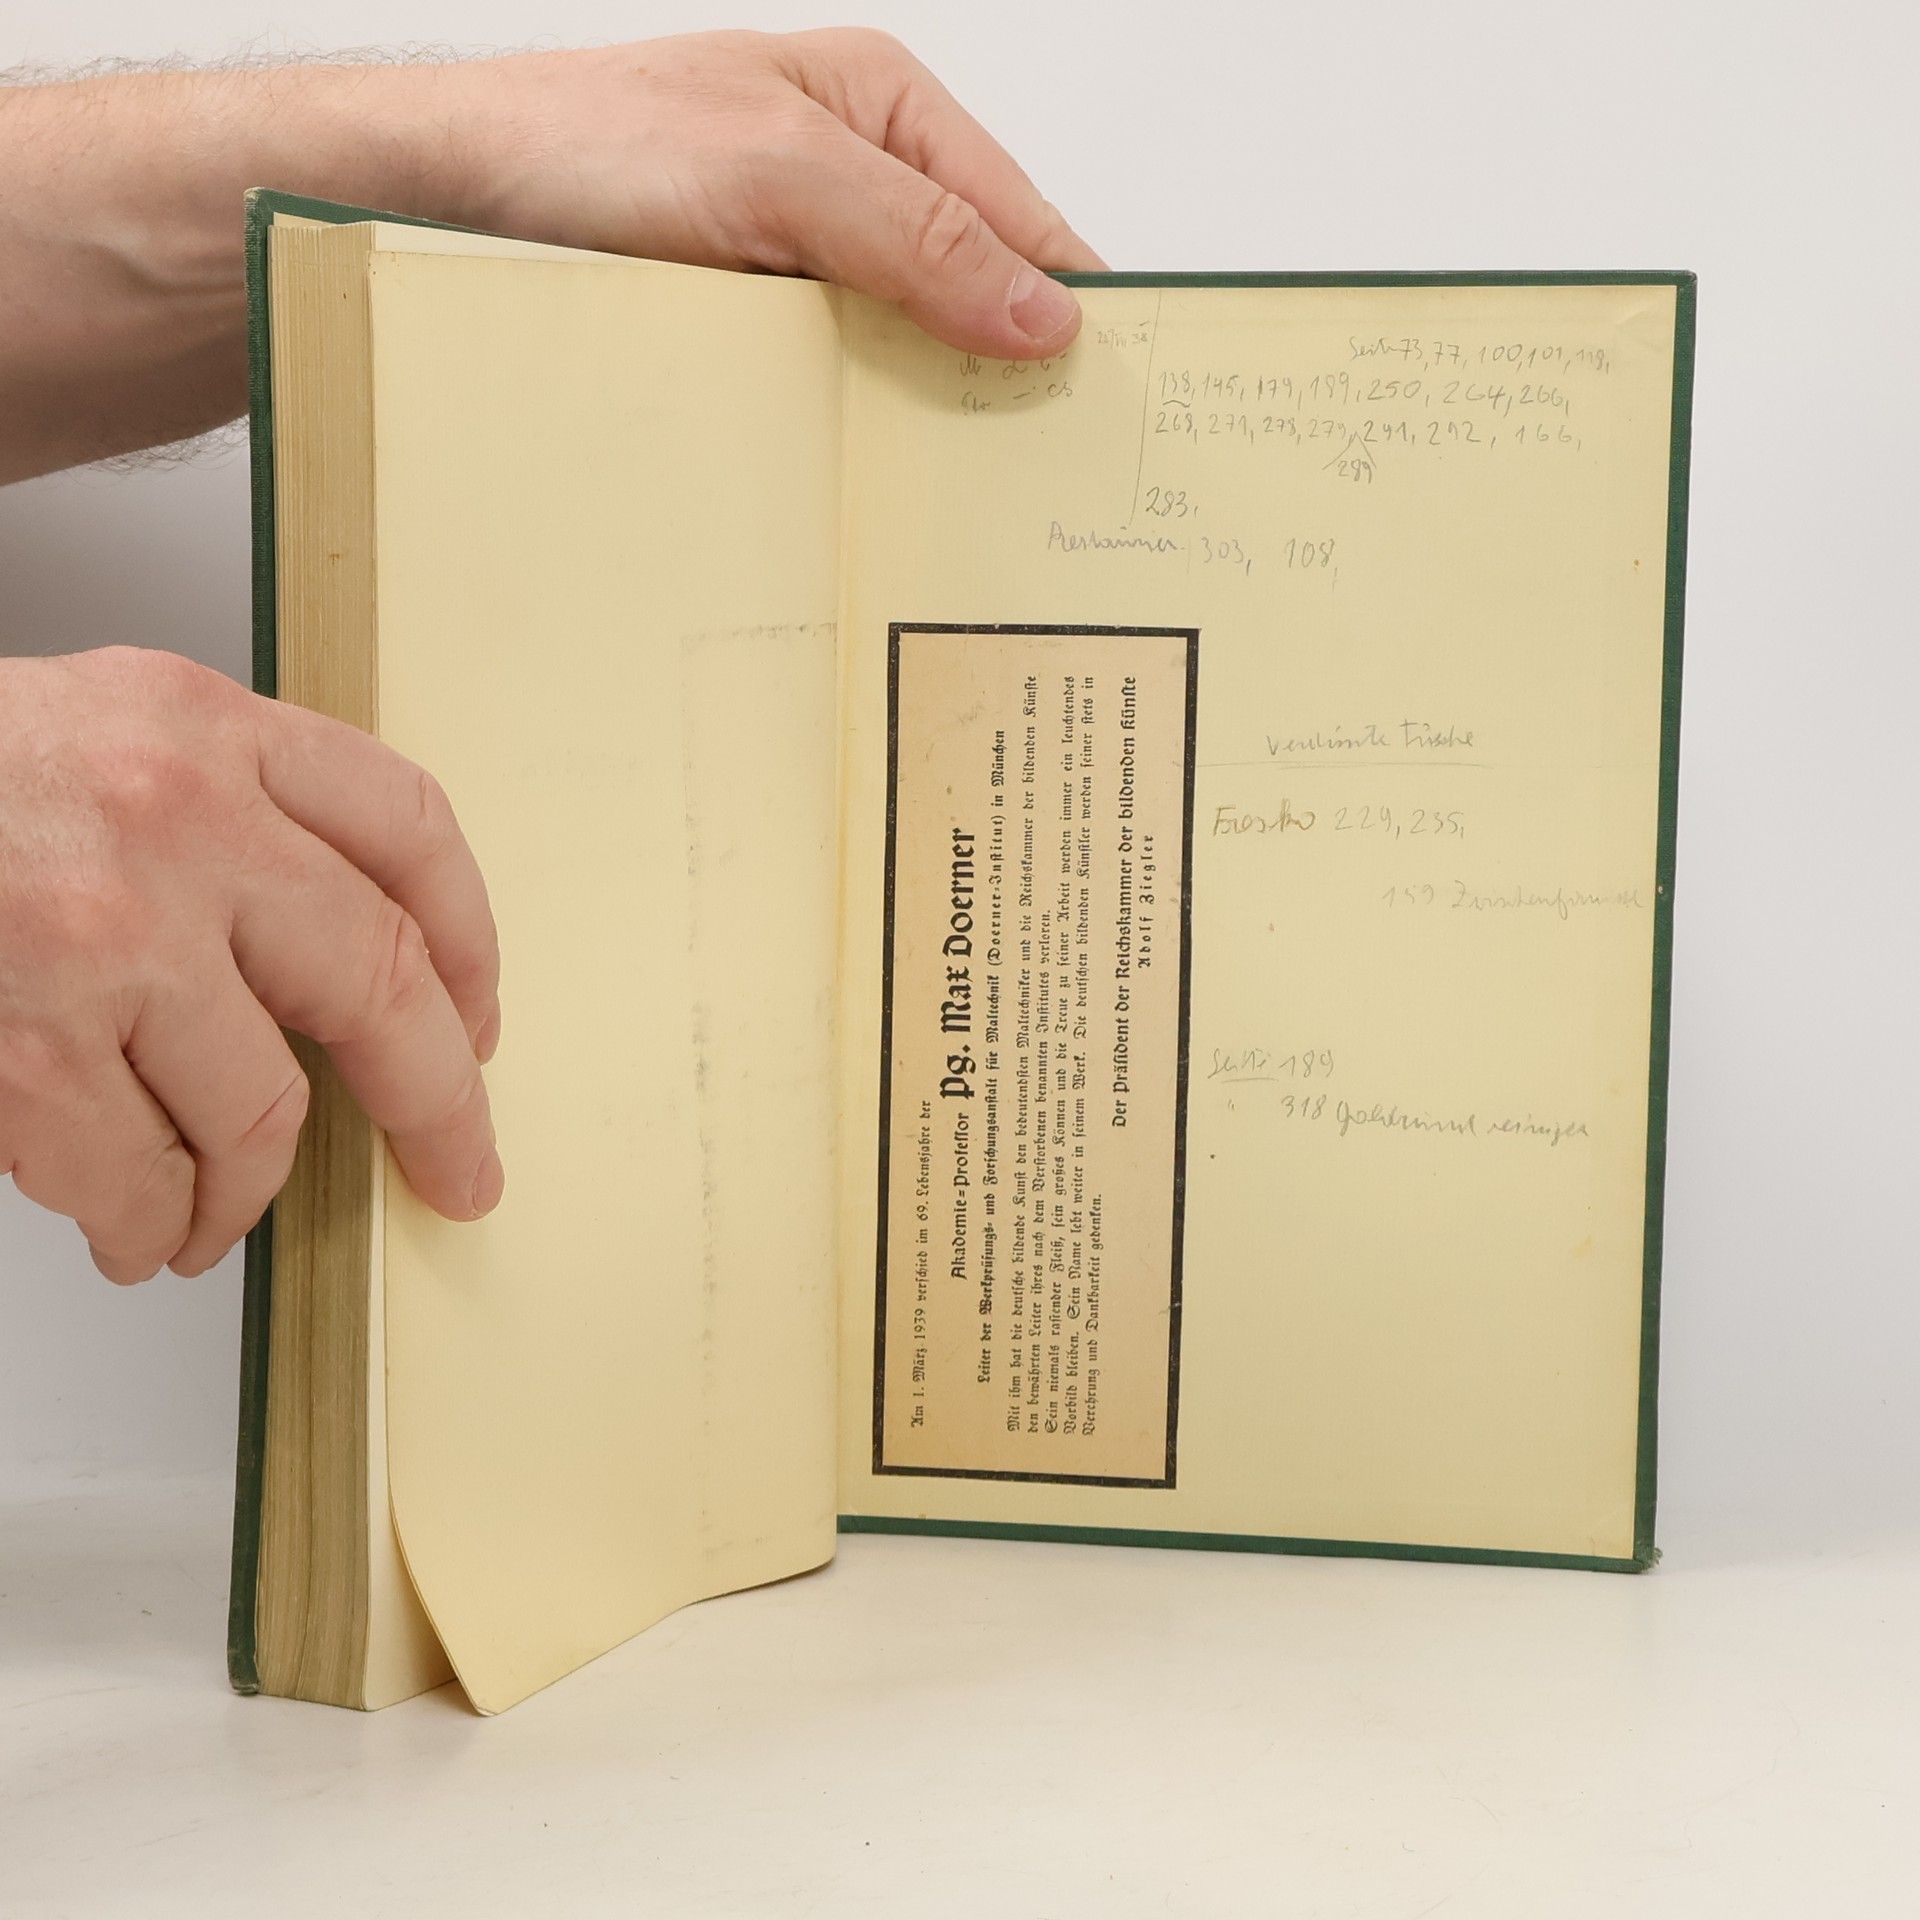 Seite 73, 77, 100, 101, 118,
138, 145, 179, 189, 250, 264, 266,
268, 271, 278, 279, 291, 292, 166,
289
283,
303, 108,
Am 1. März 1939 verschied im 69. Lebensjahre der
Akademie-Professor Pg. Max Doerner
Leiter der Werkprüfungs- und Forschungsanstalt für Maltechnik (Doerner-Institut) in München
Mit ihm hat die deutsche bildende Kunst den bedeutendsten Maltechniker und die Reichskammer der bildenden Künste
den bewährten Leiter ihres nach dem Verstorbenen benannten Institutes verloren.
Sein niemals rastender Fleiß, sein großes Können und die Treue zu seiner Arbeit werden immer ein leuchtendes
Vorbild bleiben. Sein Name lebt weiter in seinem Werk. Die deutschen bildenden Künstler werden seiner stets in
Verehrung und Dankbarkeit gedenken.
Der Präsident der Reichskammer der bildenden Künste
Adolf Ziegler
Fresko 229, 235,
159 Zwischenfirnisse
Seite 189
" 318 Goldgrund reinigen